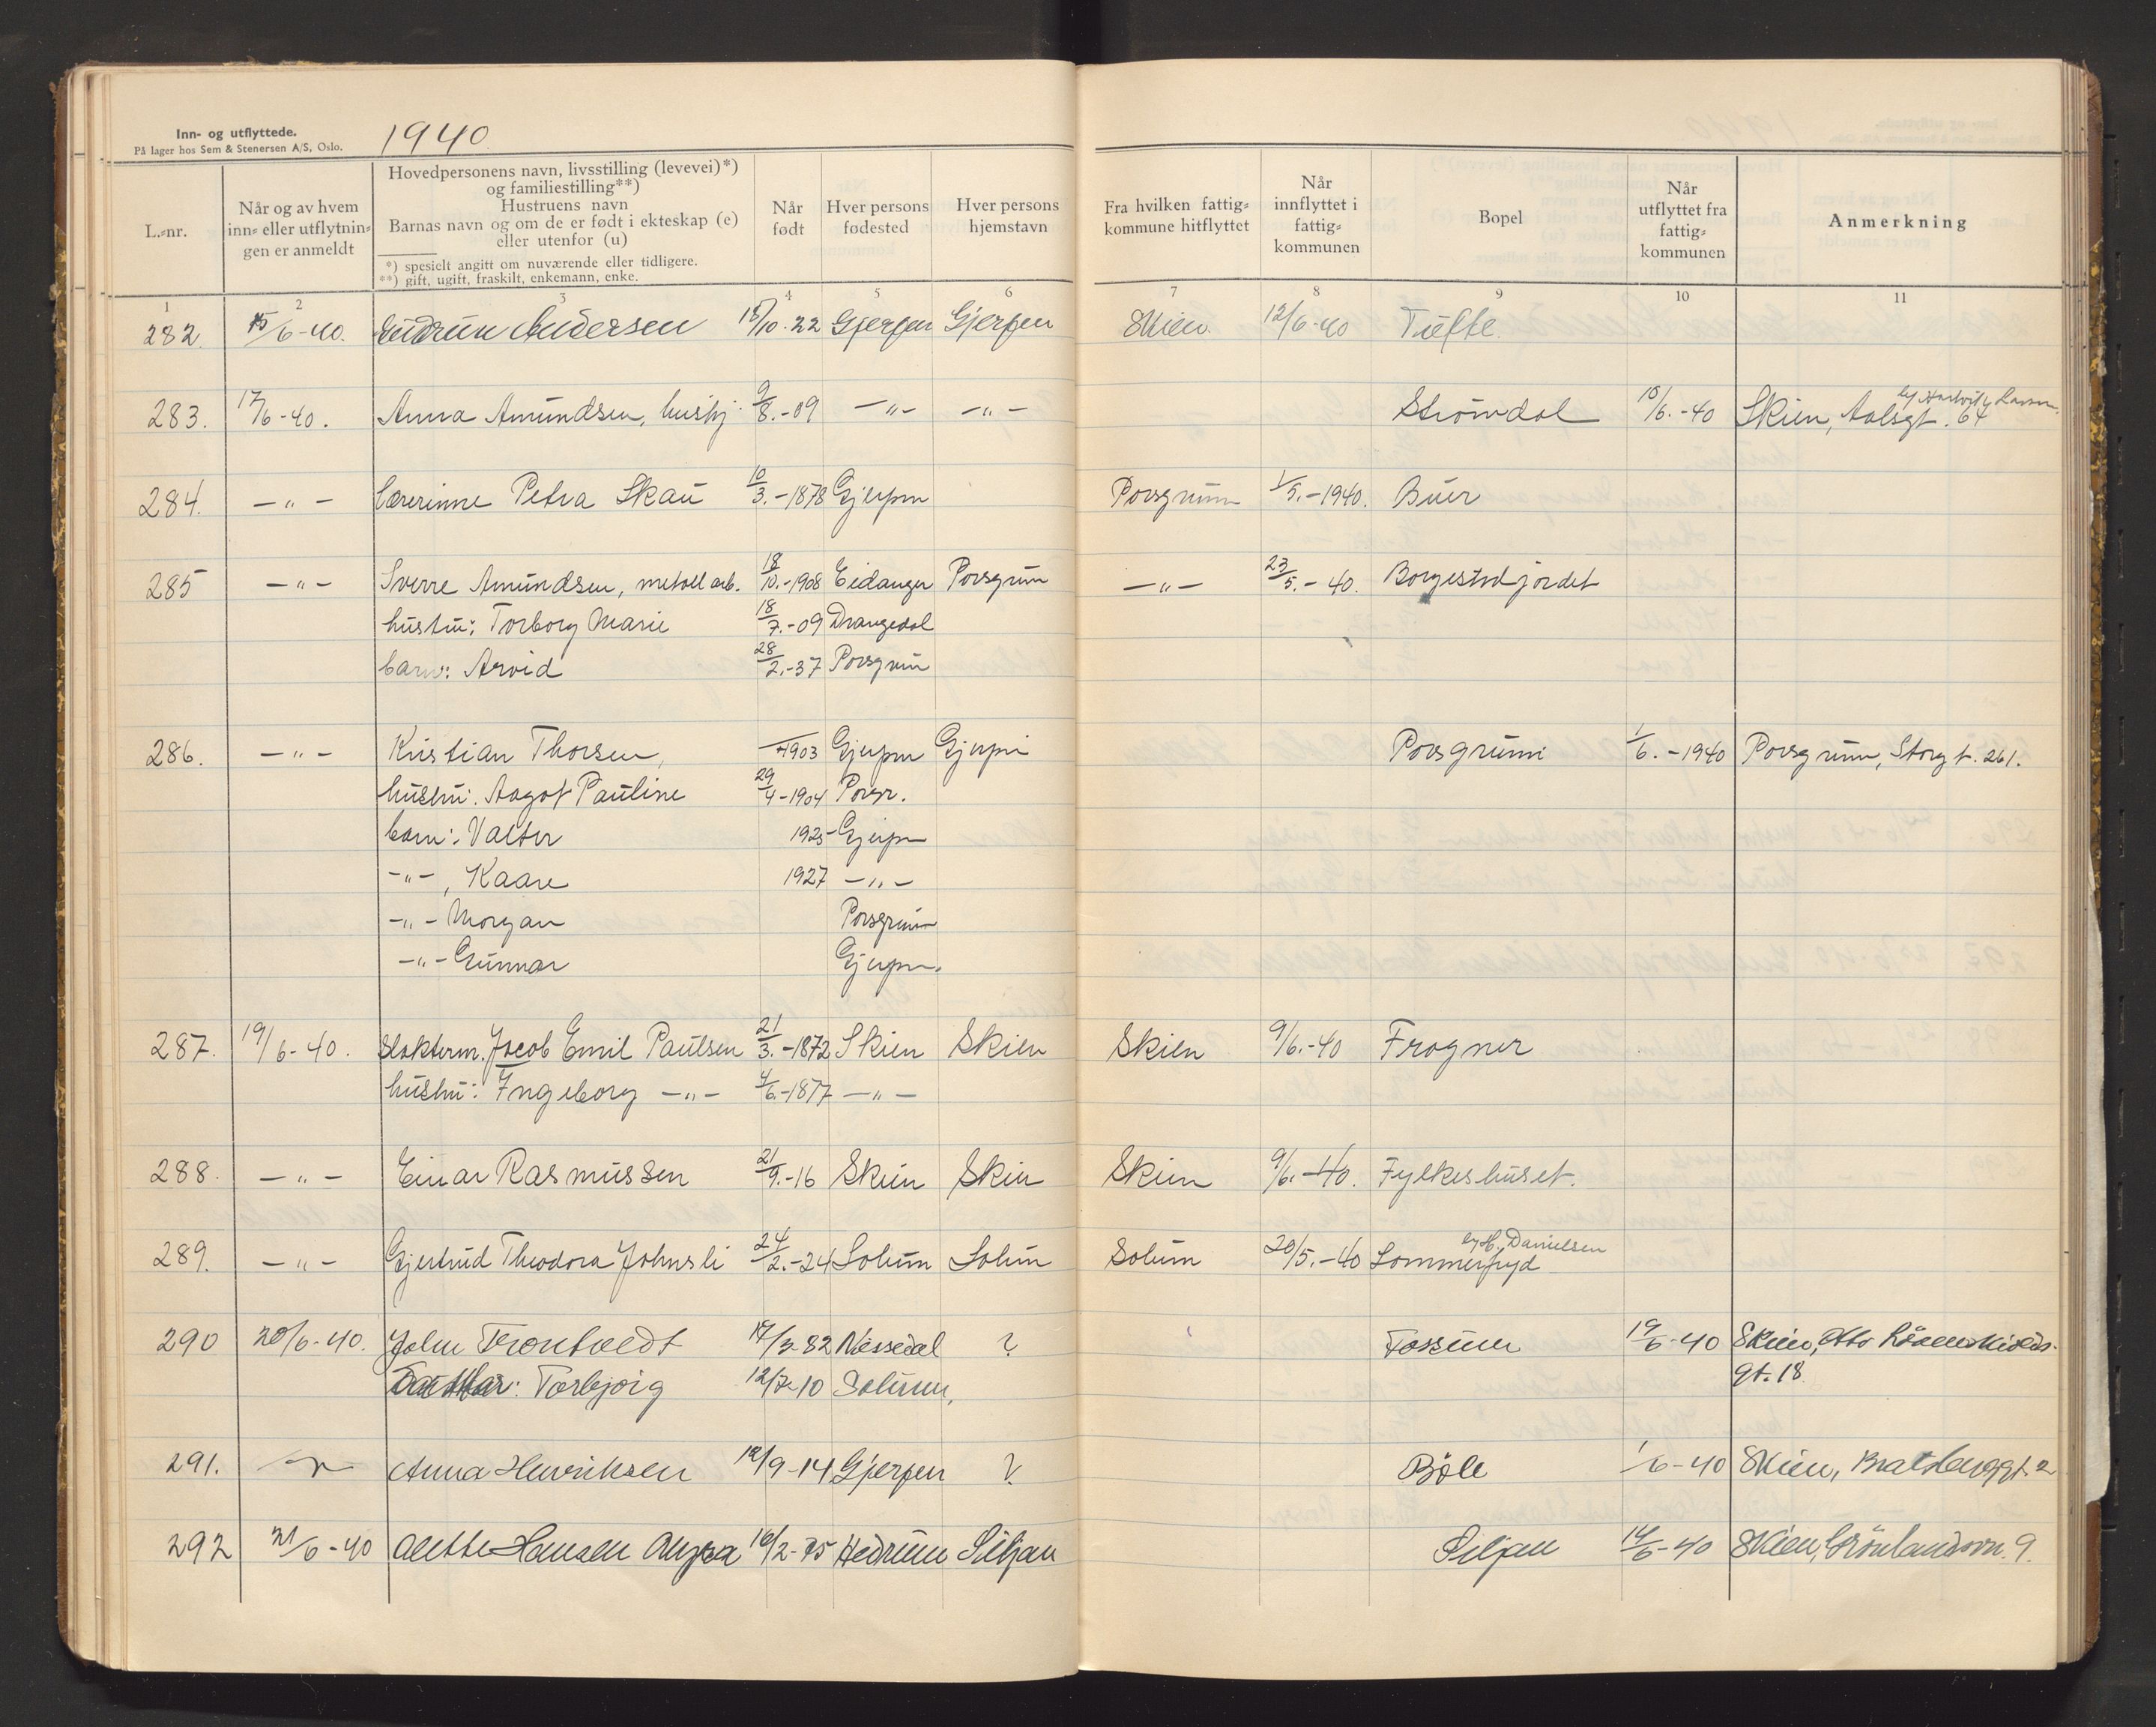 Inn- og utflyttede.
På lager hos Sem & Stenersen A/S, Oslo.
1940
L.-nr.
Når og av hvem
inn- eller utflytnin-
gen er anmeldt
Hovedpersonens navn, livsstilling (levevei)*)
og familiestilling**)
Hustruens navn
Barnas navn og om de er født i ekteskap (e)
eller utenfor (u)
*) spesielt angitt om nuværende eller tidligere.
**) gift, ugift, fraskilt, enkemann, enke.
Når
født
Hver persons
fødested
Hver persons
hjemstavn
Fra hvilken fattig-
kommune hitflyttet
Når
innflyttet i
fattig-
kommunen
Bopel
Når
utflyttet fra
fattig-
kommunen
Anmerkning
1 2 3 4 5 6 7 8 9 10 11
282. 15/6-40. Gudrun Andersen 18/10-22 Gjerpen Gjerpen Skien. 12/6-40 Tufte.
283. 17/6-40. Anna Amundsen, hushj. 9/8.-09 -"- -"- Strømdal 15/6.-40 Skien, Aalsgt. 64
284. -"- Lærerinne Petra Skau 10/3.-1878 Gjerpen Porsgrunn 1/5.-1940. Buer
285 -"- Sverre Amundsen, metallarb. 18/10.-1908 Eidanger Porsgrun -"- 23/5.-40. Borgestadjordet
hustru: Torborg Marie 18/7.-09 Drangedal
barn: Arvid 28/2.-37 Porsgrun
286. -"- Kristian Thorsen, 1903 Gjerpen Gjerpen Porsgrunn 1/6.-1940 Porsgrunn, Storgt. 261.
hustru. Aagot Pauline 29/4-1904 Porsgr.
barn: Valter 1925- Gjerpen
-"-, Kaare 1927 -"-
-"- Morgan Porsgrunn
-"- Gunnar Gjerpen.
287. 19/6-40. Slakterm. Jacob Emil Paulsen 21/3.-1872 Skien Skien Skien 9/6.-40 Frogner
hustru: Ingeborg -"- 4/6.-1877 -"-
288. -"- Einar Rasmussen 21/9.-16 Skien Skien Skien 9/6.-40. Fylkeshuset.
289. -"- Gjertrud Theodora Johnsli 24/2.-24 Solum Solum Solum 20/5.-40 Sommerfryd
by H. Danielsen
290 20/6-40. John Tronholdt 17/3-82 Nissedal ? Fossum 19/6-40 Skien, Otto Løvenskiolds-
gt. 18.
Datter: Torbjørg 12/7-10 Solum,
291. -"- Anna Henriksen 12/9-14 Gjerpen ? Bøle 1/6-40 Skien, Bratsberggt. 2
292 21/6-40 Alette Hansen 16/2-75 Hedrum Siljan Siljan 14/6-40 Skien, Grönlandsvn. 9.